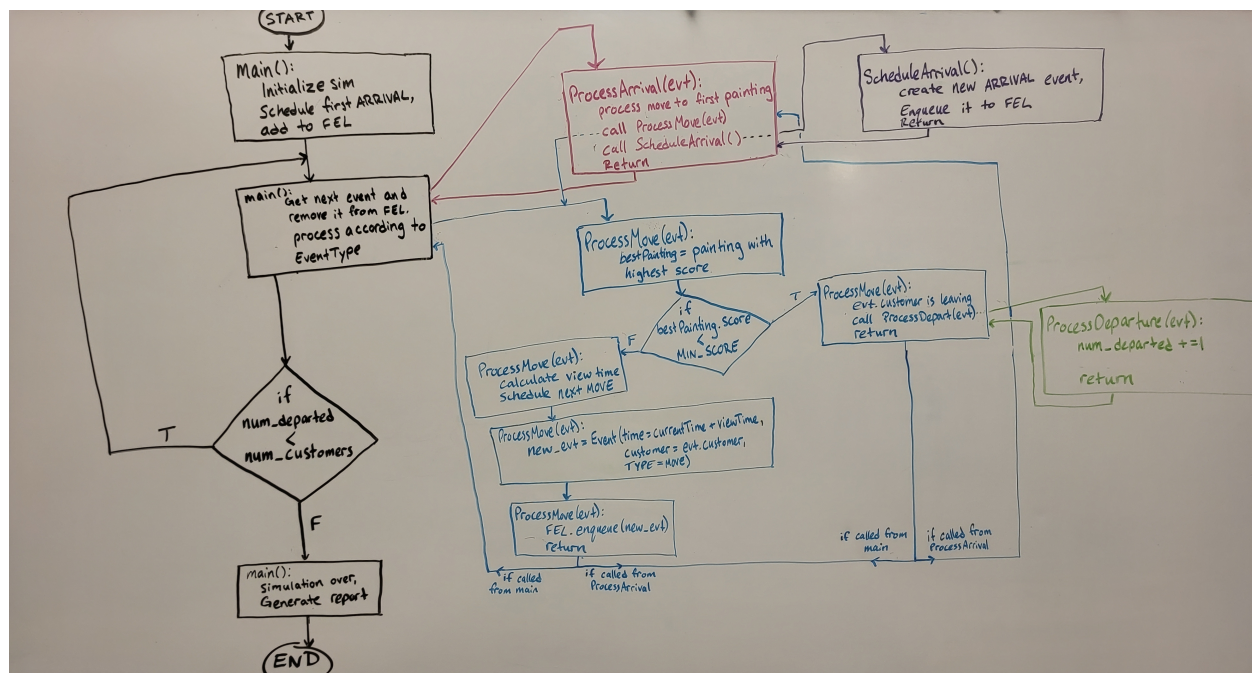 START
Main():
Initialize sim
Schedule first ARRIVAL,
add to FEL
main():
Get next event and
remove it from FEL.
process according to
EventType
if
num_departed
<
num_customers
T
F
main():
Simulation over,
Generate report
END
ProcessArrival(evt):
process move to first painting
call ProcessMove(evt)
call ScheduleArrival()
Return
ScheduleArrival():
create new ARRIVAL event,
Enqueue it to FEL
Return
ProcessMove(evt):
bestPainting = painting with
highest score
if
bestPainting.score
<
MIN_SCORE
T
F
ProcessMove(evt):
evt.customer is leaving
call ProcessDepart(evt)
return
ProcessDeparture(evt):
num_departed +=1
return
ProcessMove(evt):
calculate view time
Schedule next MOVE
ProcessMove(evt):
new_evt = Event(time=currentTime + viewTime,
customer = evt.customer,
TYPE = MOVE)
ProcessMove(evt):
FEL.enqueue(new_evt)
return
if called
from main
if called from
ProcessArrival
if called from
main
if called from
ProcessArrival